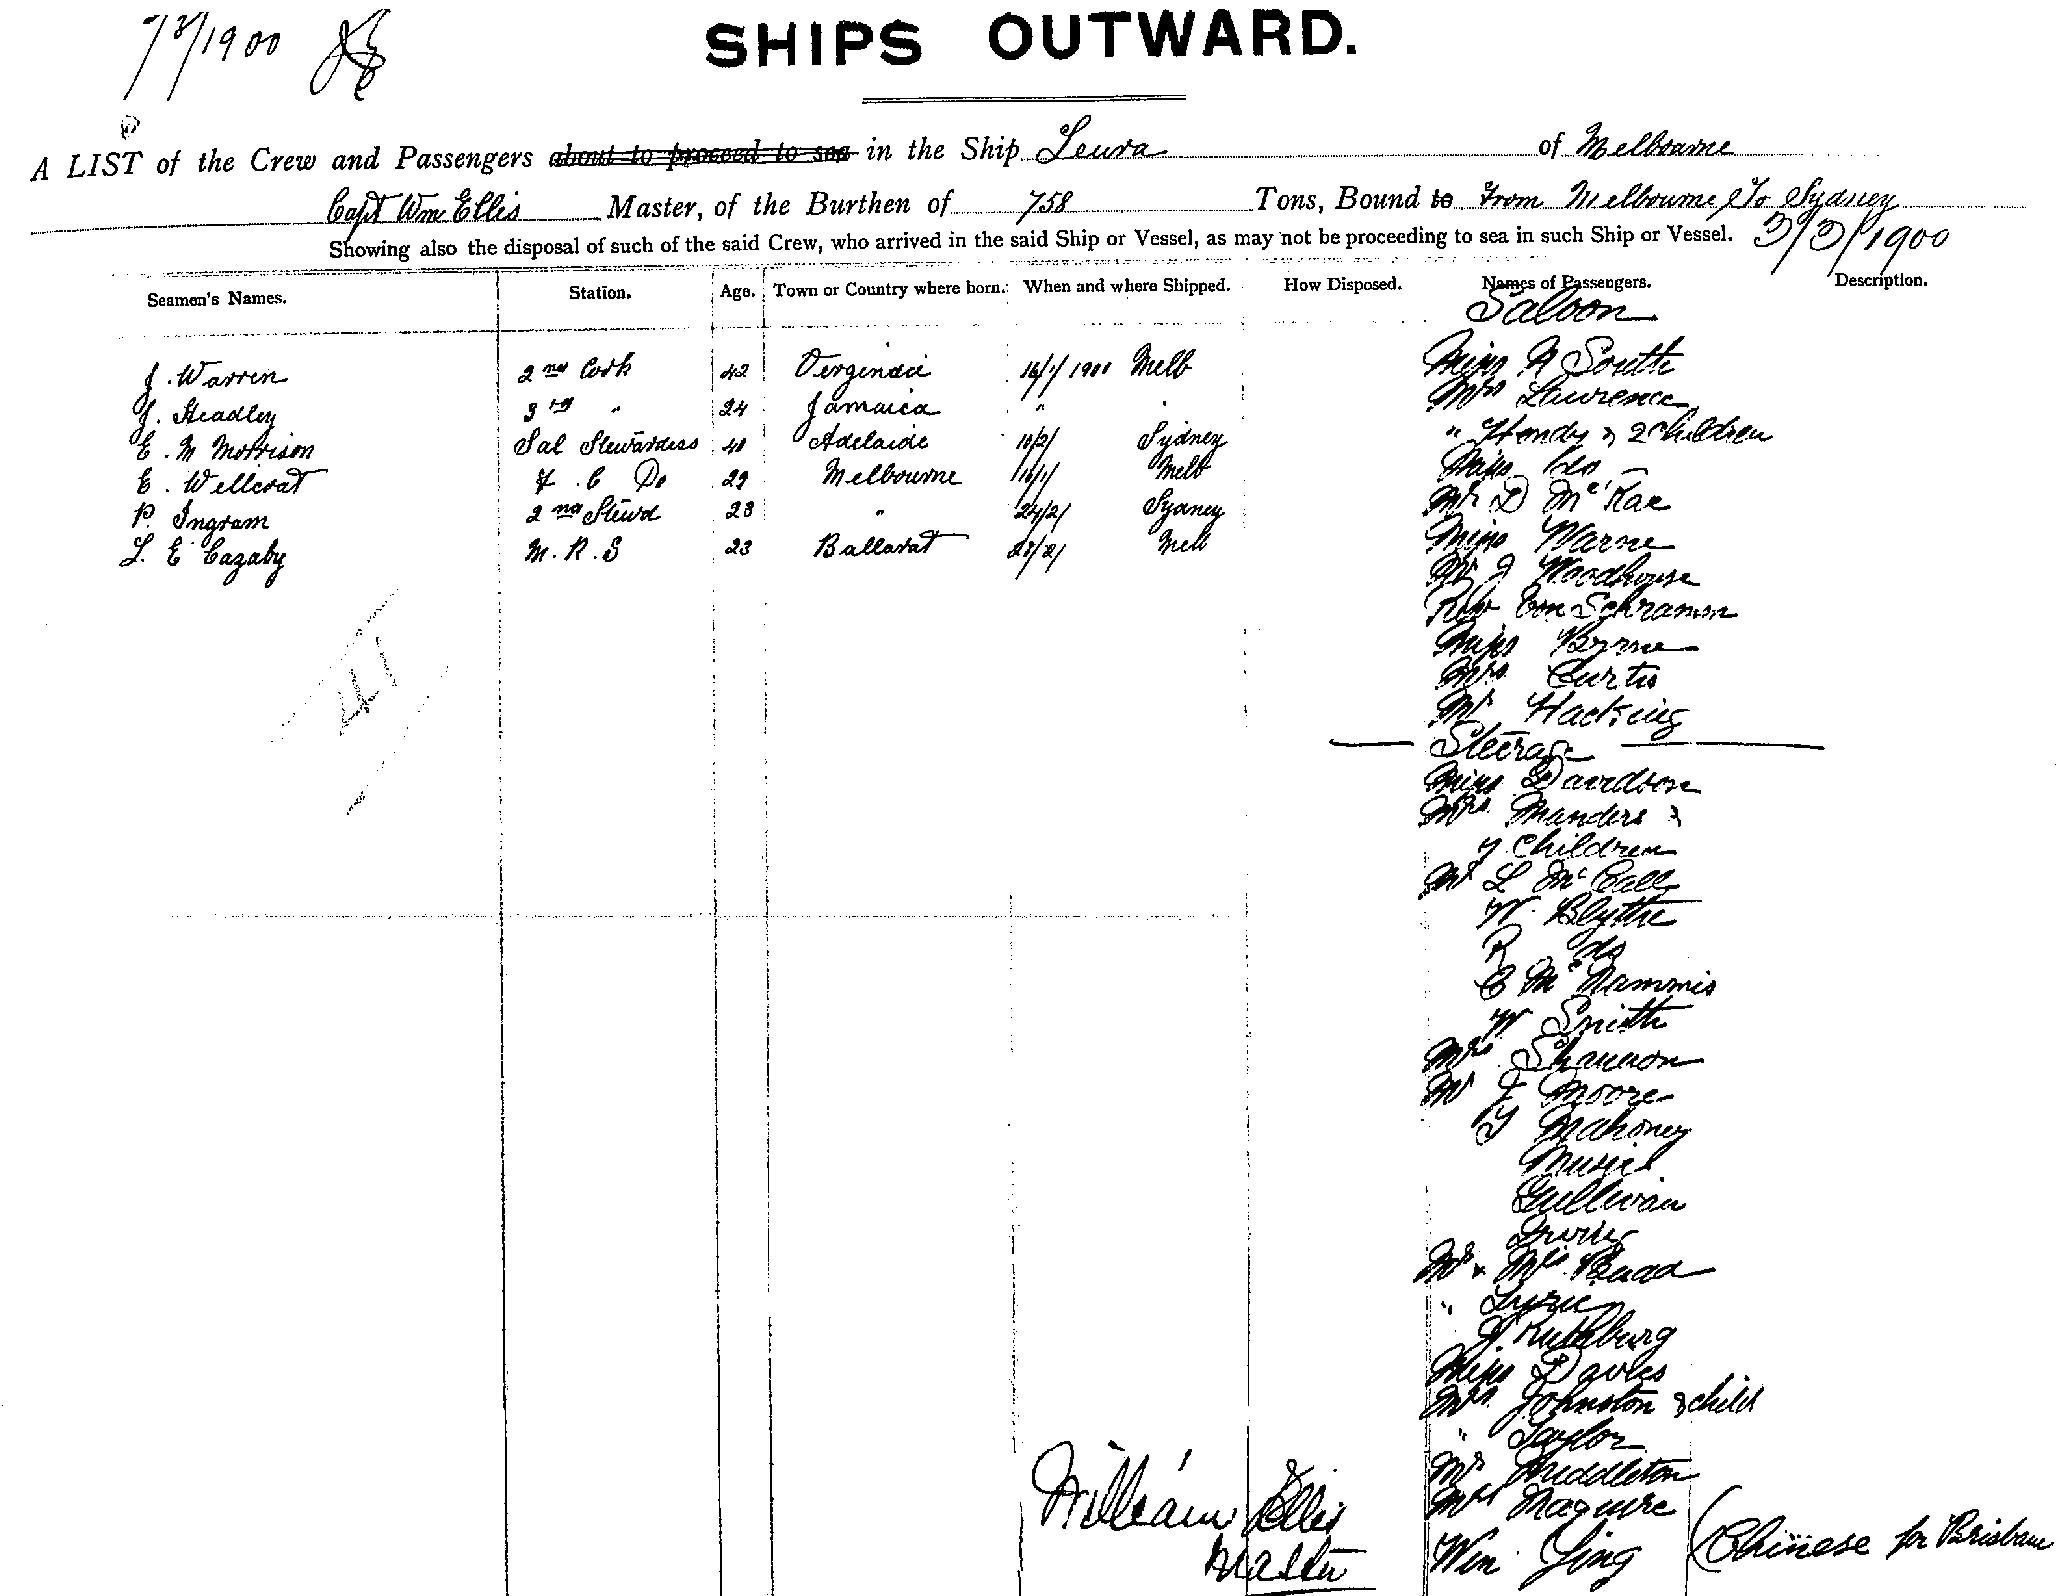 7/3/1900
SHIPS OUTWARD.
A LIST of the Crew and Passengers about to proceed to sea in the Ship Leura of Melbourne
Capt Wm Ellis Master, of the Burthen of 758 Tons, Bound to From Melbourne, To Sydney
Showing also the disposal of such of the said Crew, who arrived in the said Ship or Vessel, as may not be proceeding to sea in such Ship or Vessel. 3/3/1900
Seamen's Names. Station. Age. Town or Country where born. When and where Shipped. How Disposed. Names of Passengers. Description.
Saloon
J. Warren 2nd Cook 42 Verginai 16/1/1900 Melb
J. Headley 3rd " 24 Jamaica " "
E. M Morrison Sal Stewardess 40 Adelaide 10/2/ Sydney
E. Wellcoat F. C Do 29 Melbourne 16/1/ Melb
P. Ingram 2nd Stewd 28 " 24/2/ Sydney
L. E Cazaby M. R. S 23 Ballarat 27/2/ Melb
41
Miss N South
Mrs Lawrence
" Hendy & 2 Children
Miss do
Mr D McRae
Miss Warne
Mr J Woodhouse
Rev Von Schramm
Miss Byrne
Mrs Curtis
Mr Hacking
Steerage
Miss Davidson
Mrs Manders &
7 Children
Mr L McCall
W. Blythe
R do
C McNammis
W Smith
Mrs Shannon
Mr J Moore
Y Mahoney
Musird
Sullivan
Irvine
Mr & Mrs Budd
" Lyzie
J Ruthburg
Miss Davies
Mrs Johnston & child
" Taylor
Mr Middleton
Mrs Maguire
Win Ying (Chinese for Brisbane
William Ellis
Master